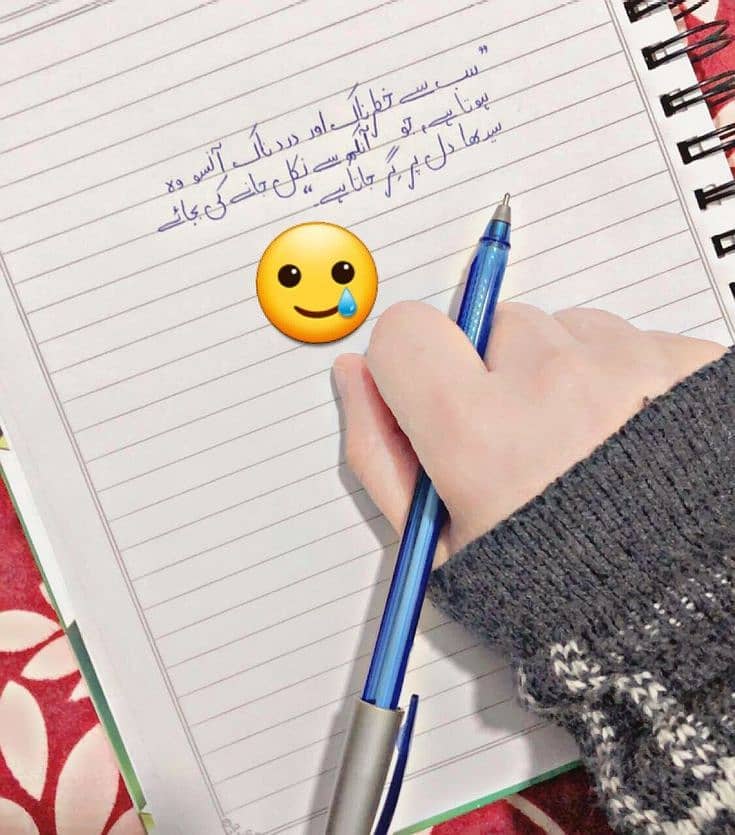 "سب سے خطرناک اور دردناک آنسو وہ
ہوتا ہے، جو آنکھ سے نکل جانے کی بجائے
سیدھا دل پر گر جاتا ہے۔"